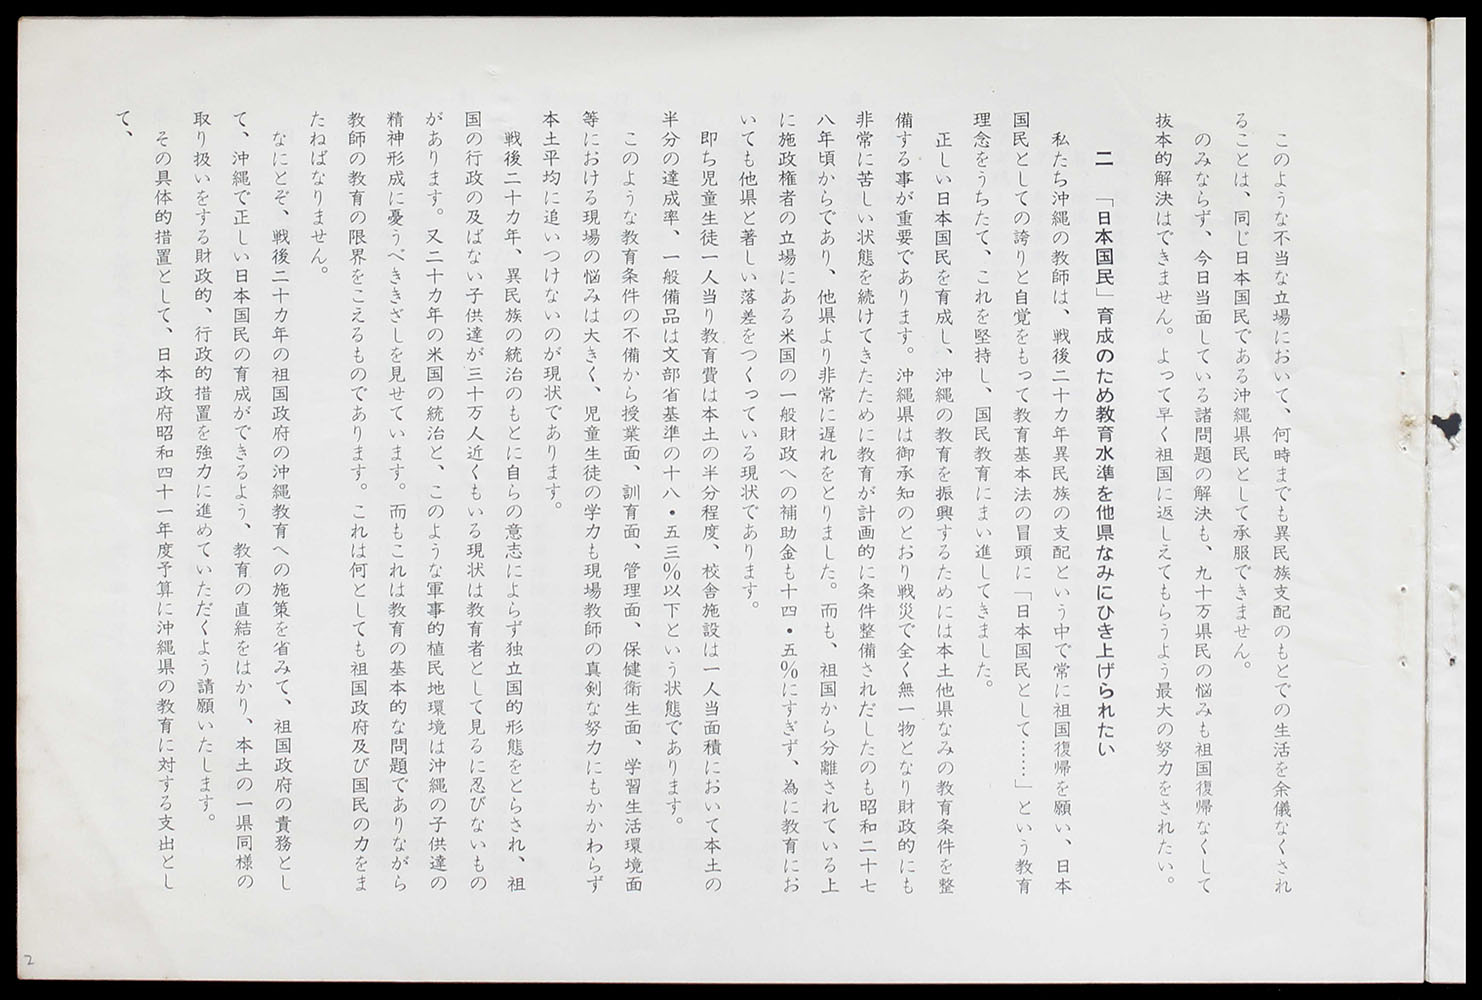 このような不当な立場において、何時までも異民族支配のもとでの生活を余儀なくされ
ることは、同じ日本国民である沖縄県民として承服できません。
のみならず、今日当面している諸問題の解決も、九十万県民の悩みも祖国復帰なくして
抜本的解決はできません。よって早く祖国に返しえてもらうよう最大の努力をされたい。
二 「日本国民」育成のため教育水準を他県なみにひき上げられたい
私たち沖縄の教師は、戦後二十カ年異民族の支配という中で常に祖国復帰を願い、日本
国民としての誇りと自覚をもって教育基本法の冒頭に「日本国民として……」という教育
理念をうちたて、これを堅持し、国民教育にまい進してきました。
正しい日本国民を育成し、沖縄の教育を振興するためには本土他県なみの教育条件を整
備する事が重要であります。沖縄県は御承知のとおり戦災で全く無一物となり財政的にも
非常に苦しい状態を続けてきたために教育が計画的に条件整備されだしたのも昭和二十七
八年頃からであり、他県より非常に遅れをとりました。而も、祖国から分離されている上
に施政権者の立場にある米国の一般財政への補助金も十四・五%にすぎず、為に教育にお
いても他県と著しい落差をつくっている現状であります。
即ち児童生徒一人当り教育費は本土の半分程度、校舎施設は一人当面積において本土の
半分の達成率、一般備品は文部省基準の十八・五三%以下という状態であります。
このような教育条件の不備から授業面、訓育面、管理面、保健衛生面、学習生活環境面
等における現場の悩みは大きく、児童生徒の学力も現場教師の真剣な努力にもかかわらず
本土平均に追いつけないのが現状であります。
戦後二十カ年、異民族の統治のもとに自らの意志によらず独立国的形態をとらされ、祖
国の行政の及ばない子供達が三十万人近くもいる現状は教育者として見るに忍びないもの
があります。又二十カ年の米国の統治と、このような軍事的植民地環境は沖縄の子供達の
精神形成に憂うべききざしを見せています。而もこれは教育の基本的な問題でありながら
教師の教育の限界をこえるものであります。これは何としても祖国政府及び国民の力をま
たねばなりません。
なにとぞ、戦後二十カ年の祖国政府の沖縄教育への施策を省みて、祖国政府の責務とし
て、沖縄で正しい日本国民の育成ができるよう、教育の直結をはかり、本土の一県同様の
取り扱いをする財政的、行政的措置を強力に進めていただくよう請願いたします。
その具体的措置として、日本政府昭和四十一年度予算に沖縄県の教育に対する支出とし
て、
2